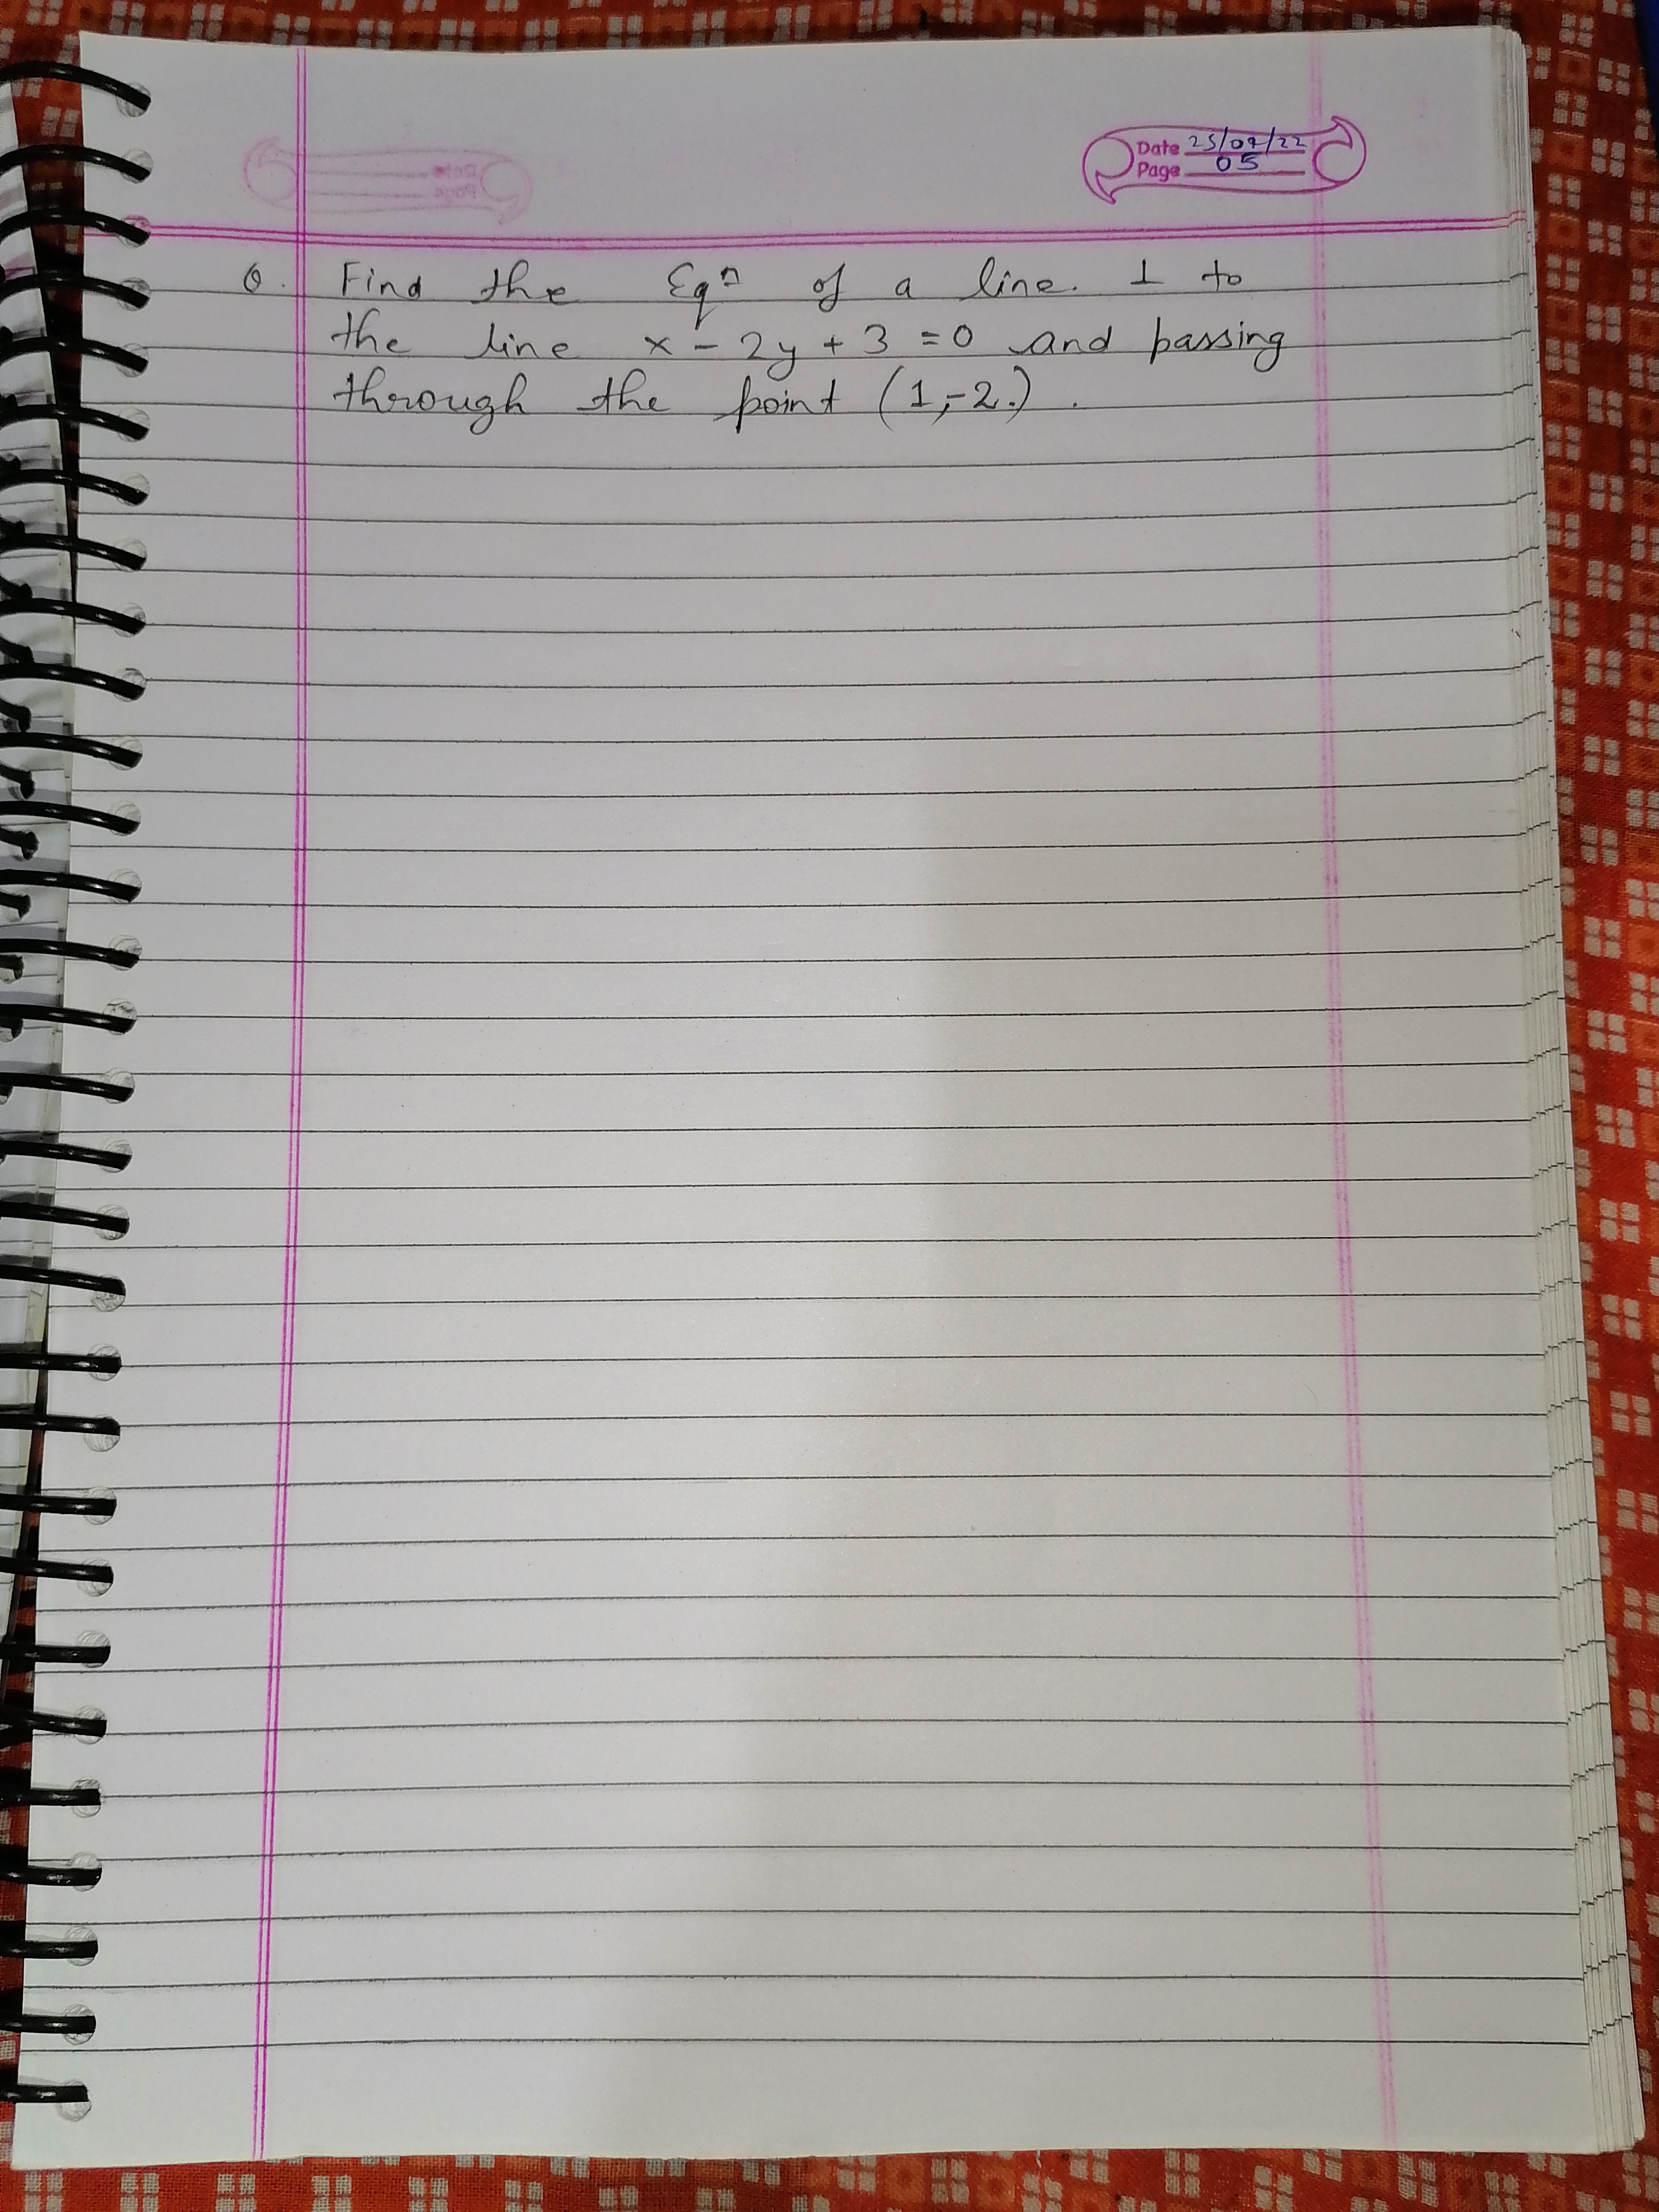 Date 25/07/22
Page 05
Q. Find the Eqⁿ of a line. ⊥ to
the line x - 2y + 3 = 0 and passing
through the point (1,-2.) .